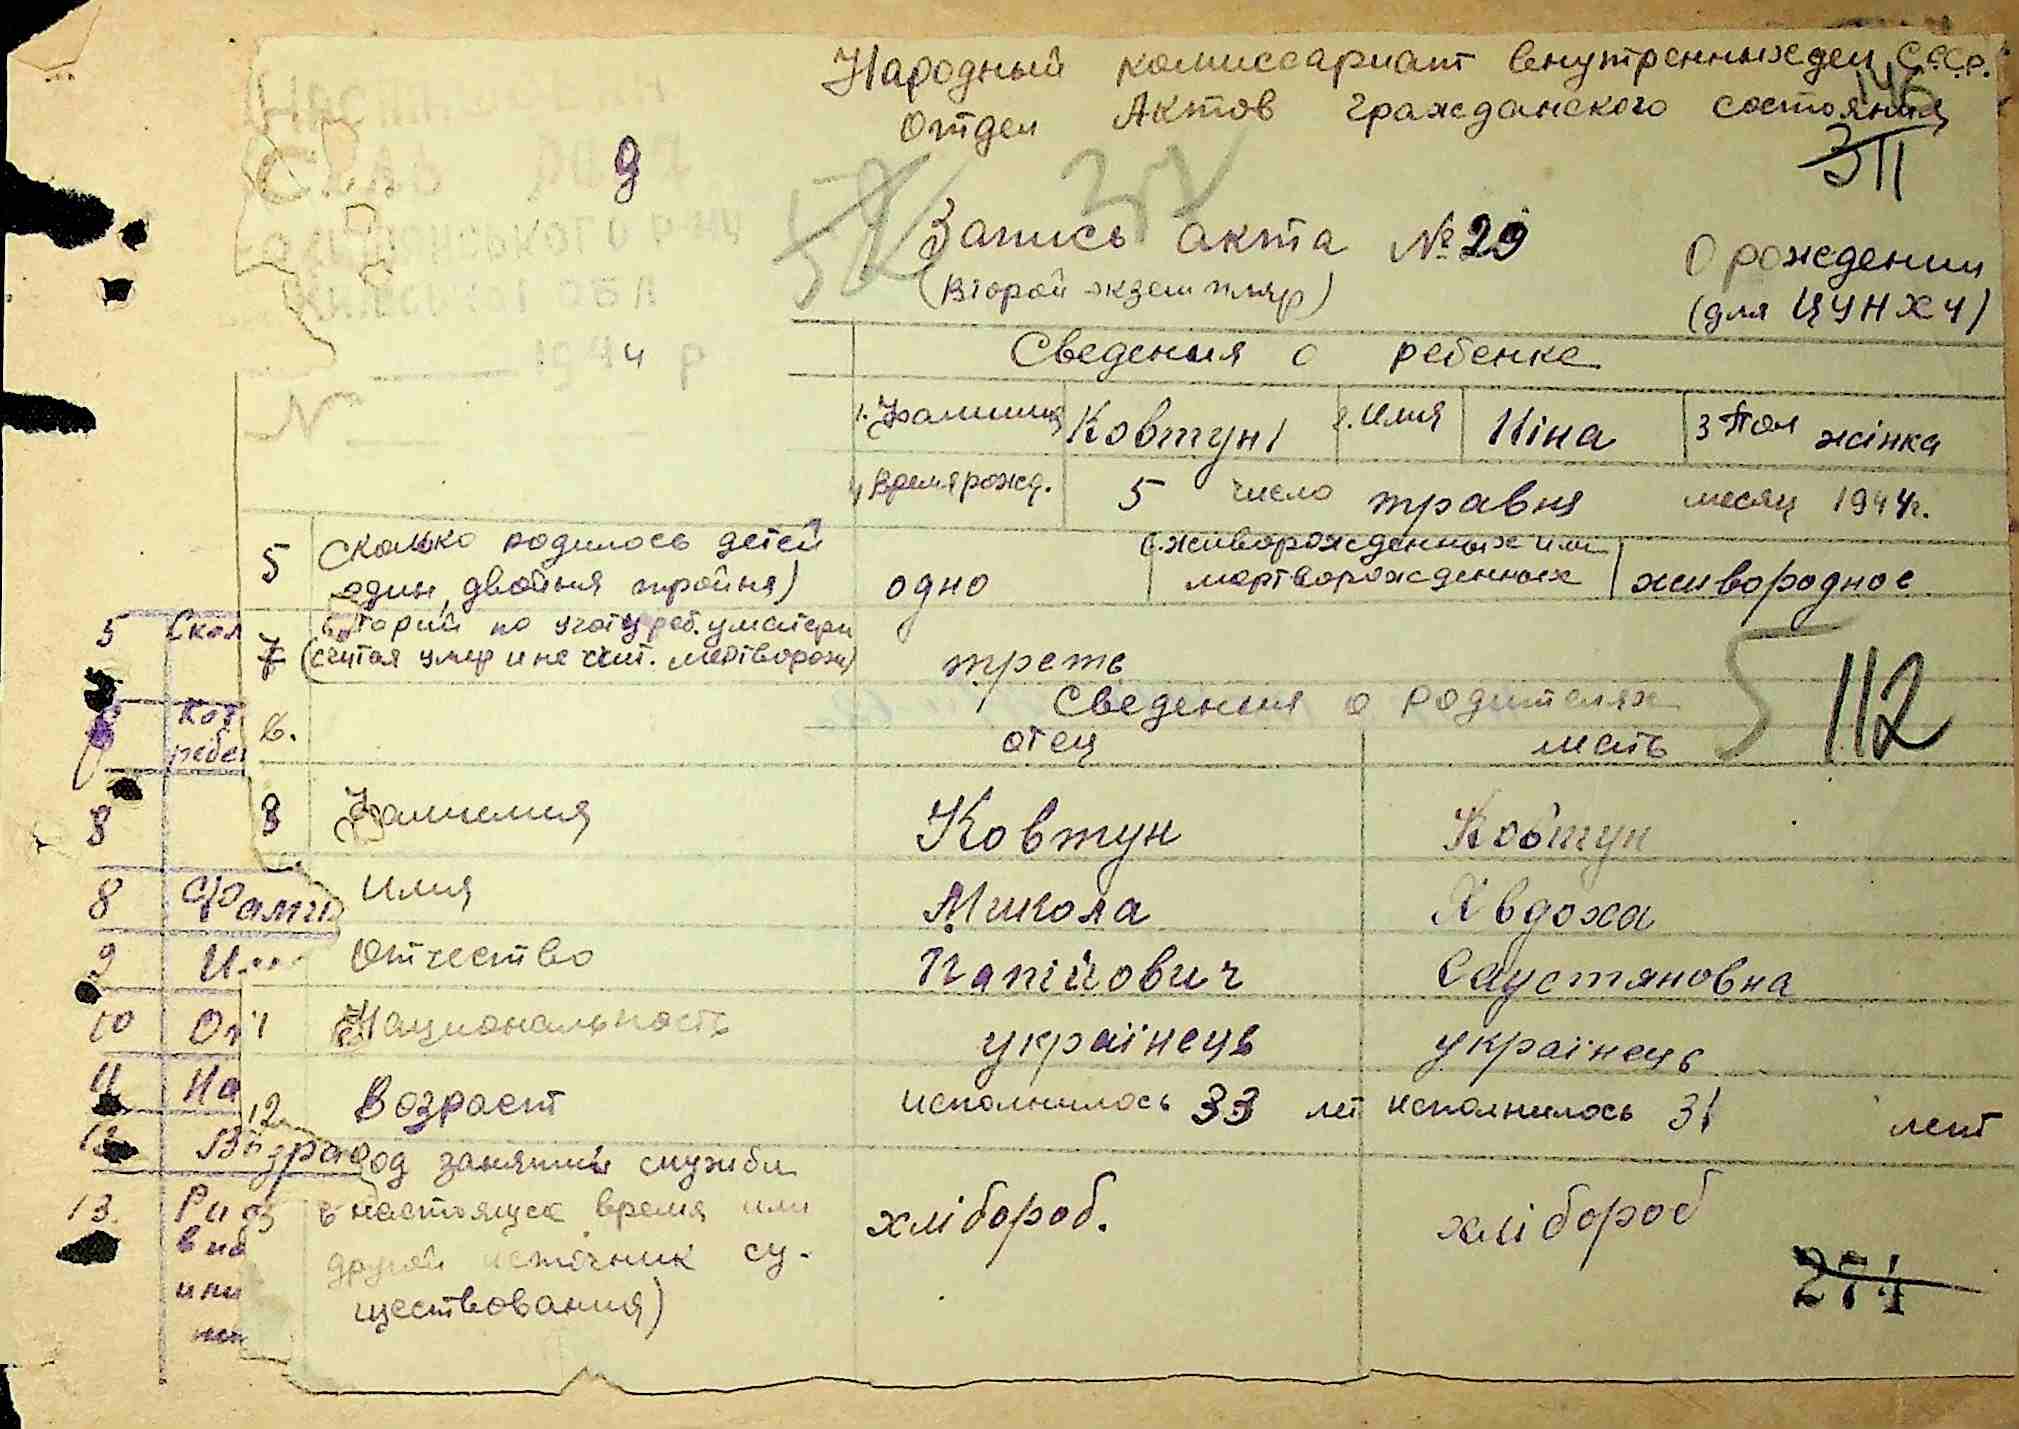 Народный комиссариат внутренных дел С.С.С.Р.
146
Отдел Актов гражданского состояния
311
9
Запись акта № 29
О рождении
(Второй экземпляр)
(для ЦУНХУ)
1944 р
№
Сведения о ребенке
1. Фамилия Ковтун 2. Имя Ніна 3 Пол жінка
4 Время рожд. 5 число травня месяц 1944г.
5 Сколько родилось детей
один, двойня тройня) одно
6. живорожденных или
мертворожденных живородное
7 который по счоту реб. у матери
(считая умер и не счит. мертворож) треть
5 112
Сведения о родителях
отец мать
8 Фамилия Ковтун Ковтун
Имя Микола Явдоха
Отчество Патійович Саустяновна
Национальность українець українець
12 Возраст исполнилось 33 лет исполнилось 31 лет
Род занятий службы
в настоящее время или
другой источник су-
ществования)
хлібороб. хлібороб
274
5 Скол
Кот
ребен
8
8 Фами
9
10 От
11 На
12 Возрас
13. Р
в на
или